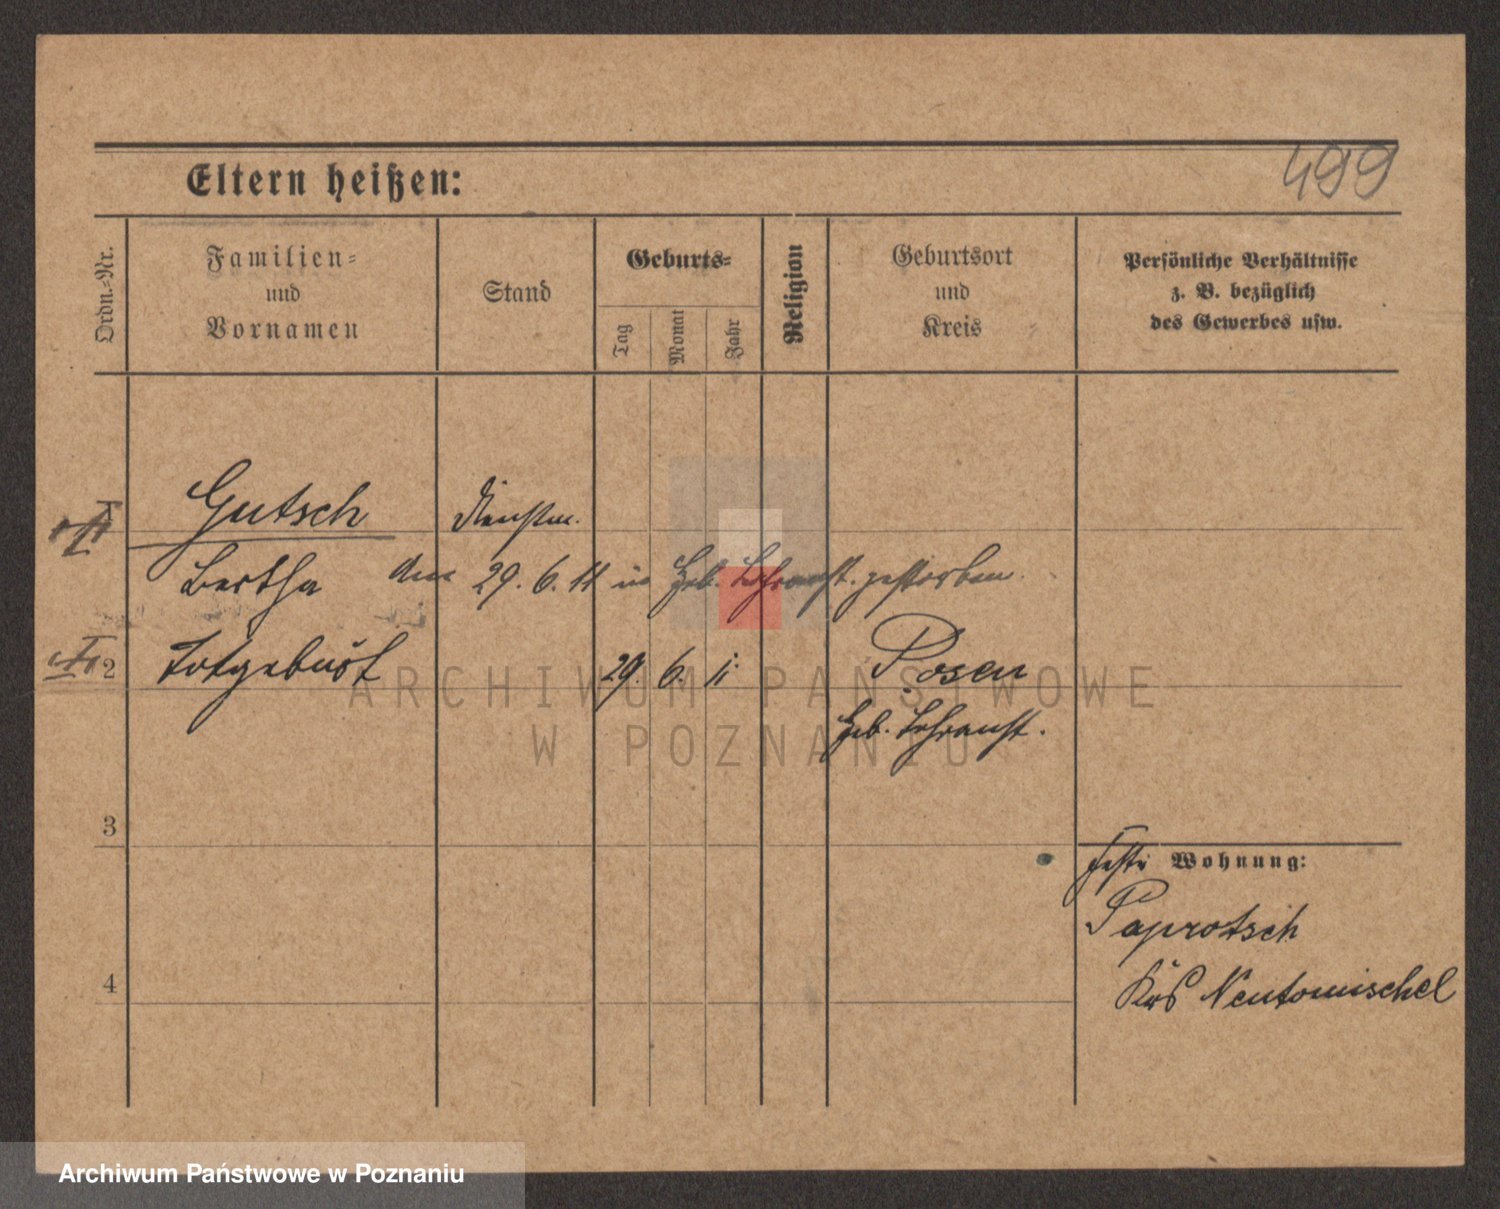 499
Eltern heißen:
Ordn.-Nr.
Familien-
und
Vornamen
Stand
Geburts-
Tag
Monat
Jahr
Religion
Geburtsort
und
Kreis
Persönliche Verhältnisse
z. B. bezüglich
des Gewerbes usw.
Gutsch
Dienstm.
Bertha am 29. 6. 11 in Heb. Lehranst. gestorben.
2 Totgeburt 29. 6. 11 Posen
Heb. Lehranst.
3
Feste Wohnung:
Paprotsch
4
Krs Neutomischel
ARCHIWUM PAŃSTWOWE
W POZNANIU
Archiwum Państwowe w Poznaniu